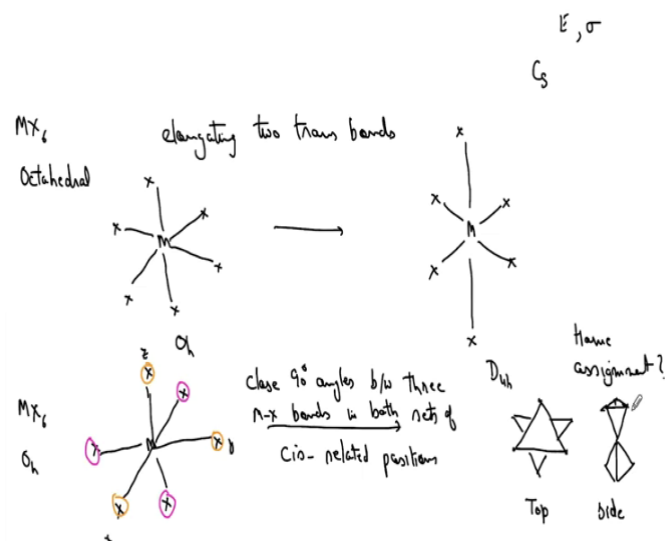 E, σ
Cs
MX6
Octahedral
elongating two trans bonds
x
x
x
x
M
x
x
x
x
x
x
M
x
x
x
Oh
D4h
MX6
Oh
z
x
x
x
M
x
y
x
x
x
close 90° angles b/w three
M-X bonds in both sets of
cis-related positions
Home
assignment?
Top
Side